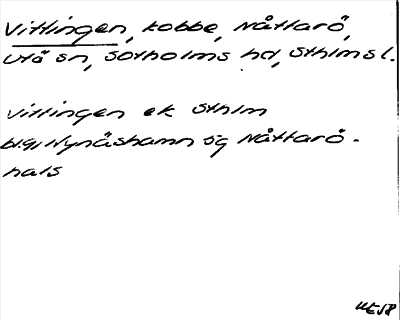 Vittingen, kobbe, Nåttarö,
Utö sn, Sotholms hd, Sthlms l.
Vittingen ek Sthlm
bl. 9, Nynäshamn sg Nåttarö-
hals